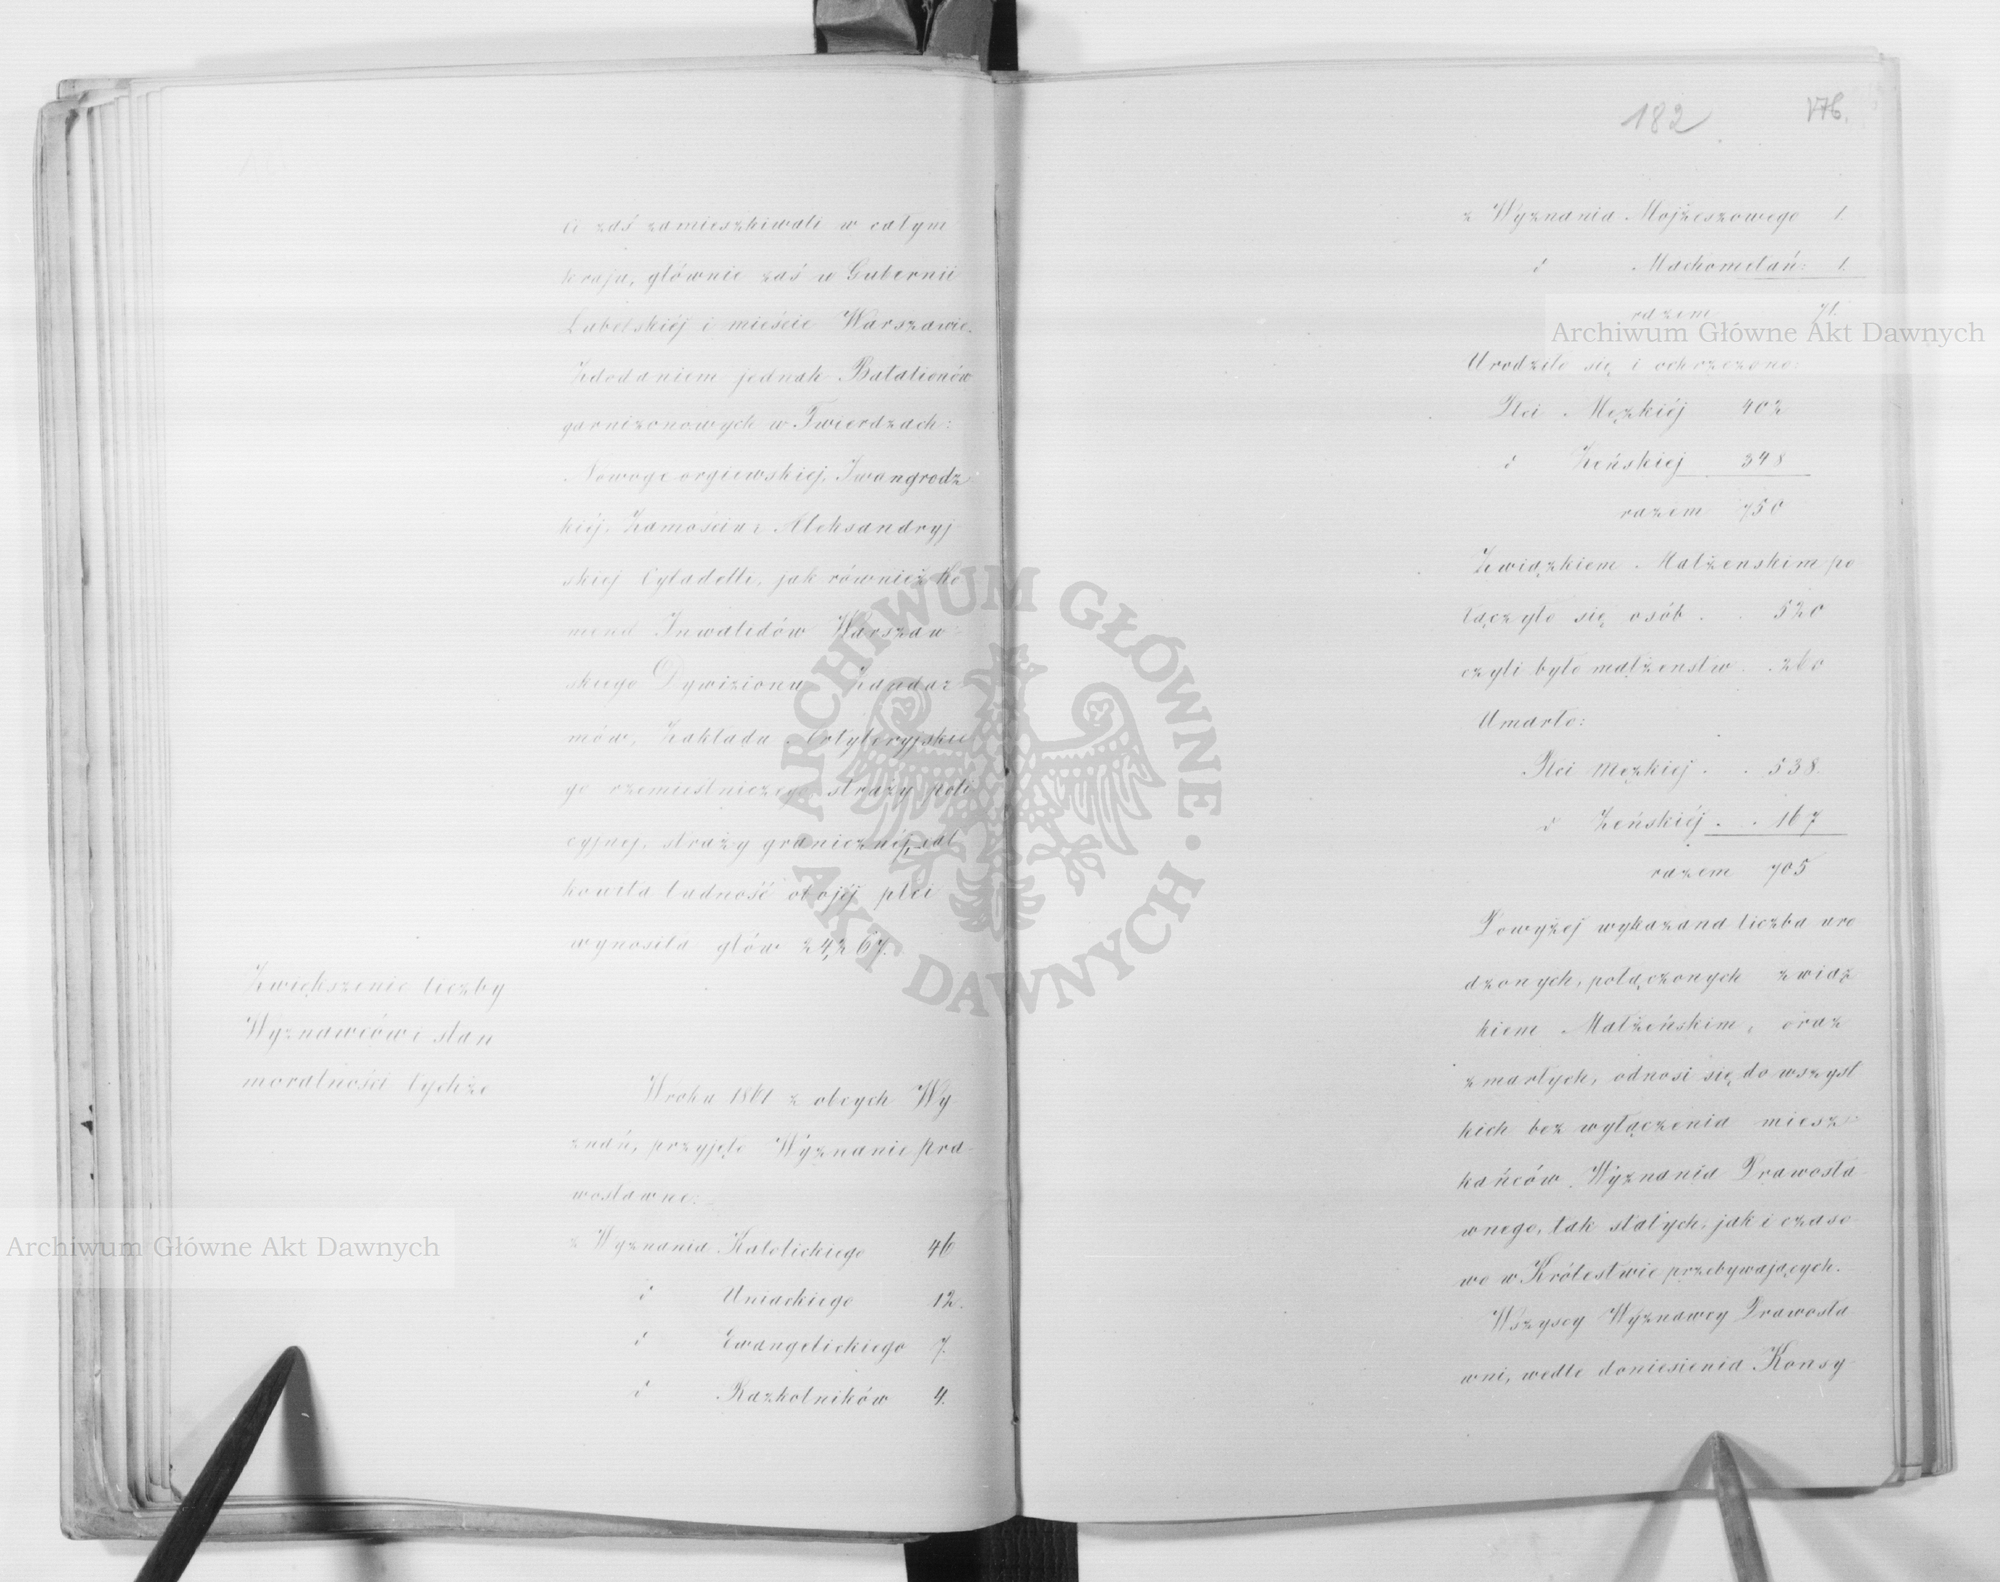 ci zaś zamieszkiwali w całym
kraju, głównie zaś w Gubernii
Lubelskiéj i mieście Warszawie.
Zdodaniem jednak Batalionów
garnizonowych w Twierdzach:
Nowogeorgiewskiéj, Iwangrodz
kiéj, Zamościu i Aleksandryj
skiej Cytadelli, jak również Ko
mend Inwalidów Warszaw
skiego Dywizionu Żandar
mów, Zakładu Artyleryjskie
go rzemieślniczego, straży poli
cyjnej, straży granicznéj, cał
kowita ludność obojéj płci
wynosiła głów 24,267.
Zwiększenie liczby
Wyznawców i stan
moralności tychże
W roku 1861 z obcych Wy
znań, przyjęło Wyznanie pra
wosławne:
z Wyznania Katolickiego 46
d Uniackiego 12.
d Ewangelickiego 7.
d Razkolników 4.
182 176.
z Wyznania Mojżeszowego 1
d Machometań: 1.
razem 71.
Urodziło się i ochrzczono:
Płci Męzkiéj 402
d Żeńskiej 348
razem 750
Związkiem Małżenskim po
łączyło się osób . . 520
czyli było małżenstw . . 260
Umarło:
Płci męzkiej . . 538.
d Żeńskiéj . . 167
razem 705
Powyżej wykazana liczba uro
dzonych, połączonych związ
kiem Małżeńskim, oraz
zmarłych, odnosi się do wszyst
kich bez wyłączenia miesz
kańców Wyznania Prawosła
wnego, tak stałych, jak i czaso
wo w Królestwie przebywających.
Wszyscy Wyznawcy Prawosła
wni, wedle doniesienia Konsy
Archiwum Główne Akt Dawnych
Archiwum Główne Akt Dawnych
ARCHIWUM GŁÓWNE AKT DAWNYCH